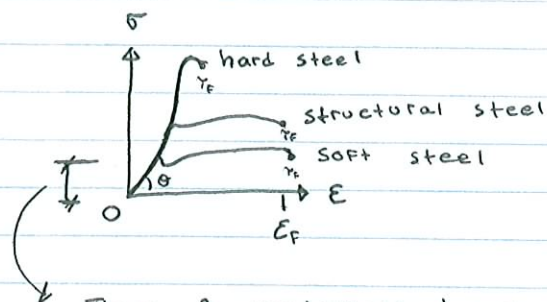 σ
hard steel
γF
structural steel
γF
soft steel
γF
θ
O
ε
εF